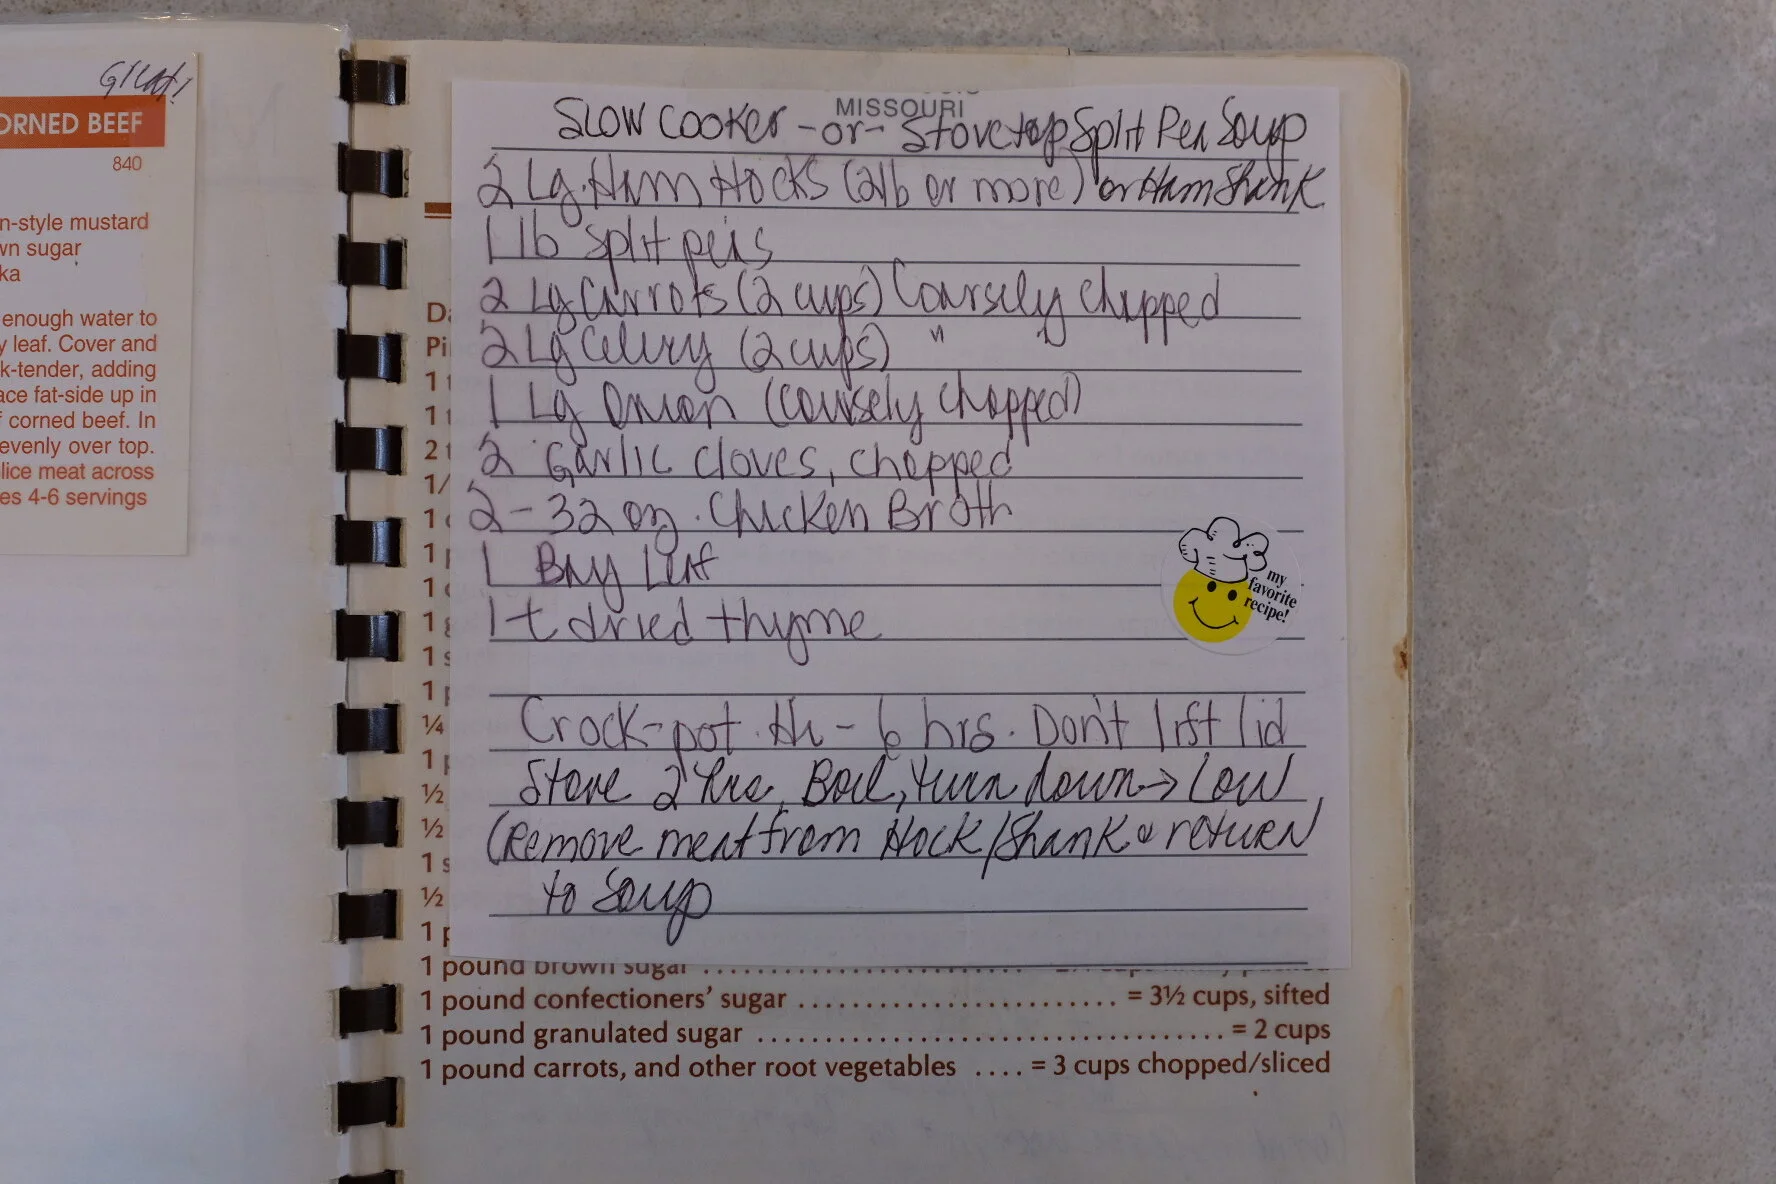 Great!
ORNED BEEF
840
n-style mustard
wn sugar
ka
enough water to
y leaf. Cover and
k-tender, adding
ace fat-side up in
f corned beef. In
evenly over top.
lice meat across
es 4-6 servings
MISSOURI
Slow Cooker -or- Stovetop Split Pea Soup
2 Lg. Ham Hocks (2lb or more) or Ham Shank
1 lb split peas
2 Lg Carrots (2 cups) Coarsely chopped
2 Lg Celery (2 cups) "
1 Lg Onion (coarsely chopped)
2 Garlic cloves, chopped
2 - 32 oz. Chicken Broth
1 Bay Leaf
1 t dried thyme
my
favorite
recipe!
Crock-pot. Hi - 6 hrs. Don't lift lid
Stove 2 hrs. Boil, turn down → Low
(Remove meat from Hock/Shank & return
to Soup
Da
Pi
1 t
1 t
2 t
1/
1 c
1 p
1 c
1 g
1 s
1 p
¼
1 p
½
½
1 s
½
1 p
1 pound brown sugar
1 pound confectioners' sugar ........................ = 3½ cups, sifted
1 pound granulated sugar ................................... = 2 cups
1 pound carrots, and other root vegetables .... = 3 cups chopped/sliced